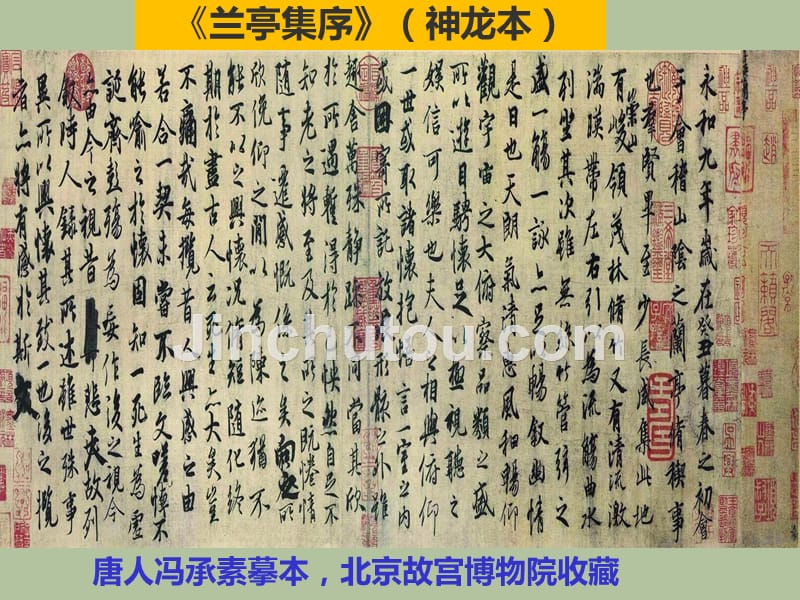 《兰亭集序》（神龙本）
永和九年歲在癸丑暮春之初會
于會稽山陰之蘭亭脩稧事
也羣賢畢至少長咸集此地
有崇山峻領茂林脩竹又有清流激
湍暎帶左右引以為流觴曲水
列坐其次雖無絲竹管弦之
盛一觴一詠亦足以暢叙幽情
是日也天朗氣清惠風和暢仰
觀宇宙之大俯察品類之盛
所以遊目騁懷足以極視聽之
娛信可樂也夫人之相與俯仰
一世或取諸懷抱悟言一室之內
或因寄所託放浪形骸之外雖
趣舍萬殊靜躁不同當其欣
於所遇蹔得於己怏然自足不
知老之將至及其所之既惓情
隨事遷感慨係之矣向之所
欣俛仰之閒以為陳迹猶不
能不以之興懷況脩短隨化終
期於盡古人云死生亦大矣豈
不痛哉每攬昔人興感之由
若合一契未嘗不臨文嗟悼不
能喻之於懷固知一死生為虛
誕齊彭殤為妄作後之視今
亦由今之視昔悲夫故列
敘時人錄其所述雖世殊事
異所以興懷其致一也後之攬
者亦將有感於斯文
Jinchutou.com
唐人冯承素摹本，北京故宫博物院收藏